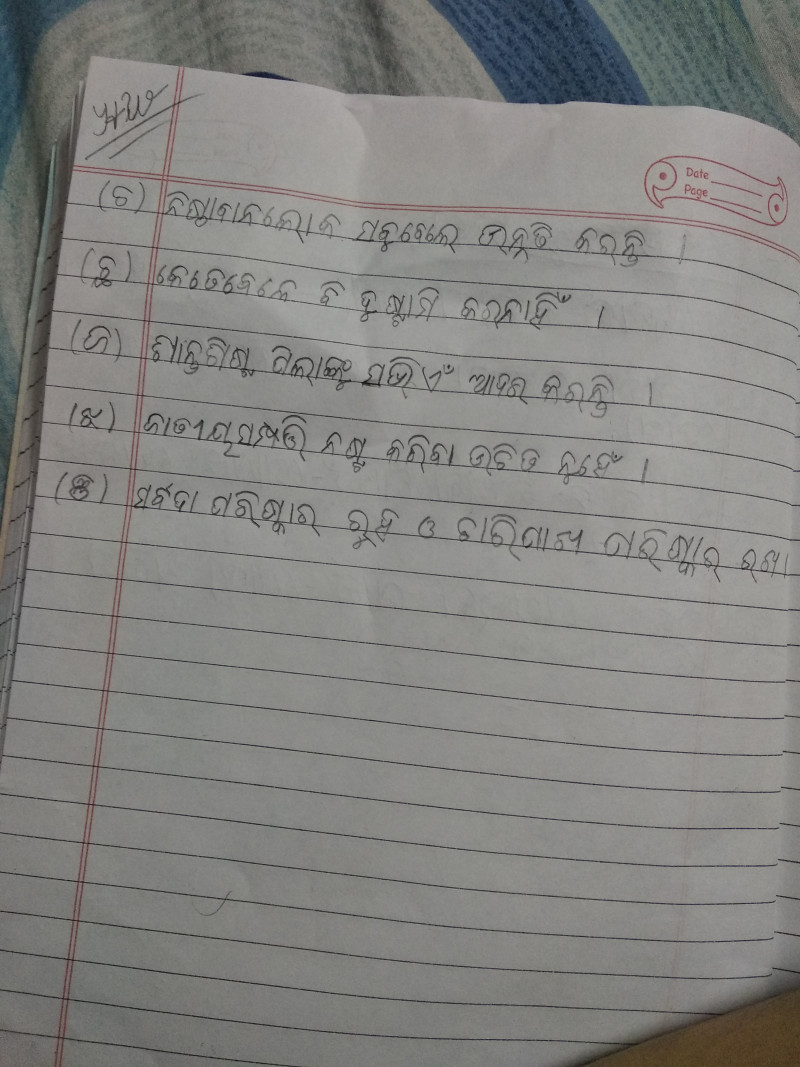 HW
Date
Page
(ଚ) ନିଷ୍ଠାବାନଲୋକ ସବୁବେଳେ ଉନ୍ନତି କରନ୍ତି ।
(ଛ) କେତେବେଳେ ବି ଦୁଷ୍ଟାମି କରନାହିଁ ।
(ଜ) ଶାନ୍ତଶିଷ୍ଟ ପିଲାଙ୍କୁ ସଭିଏଁ ଆଦର କରନ୍ତି ।
(ଝ) ଜାତୀୟସମ୍ପତ୍ତି ନଷ୍ଟ କରିବା ଉଚିତ ନୁହେଁ ।
(ଞ) ସର୍ବଦା ପରିଷ୍କାର ରୁହ ଓ ଚାରିପାଖ ପରିଷ୍କାର ରଖ।